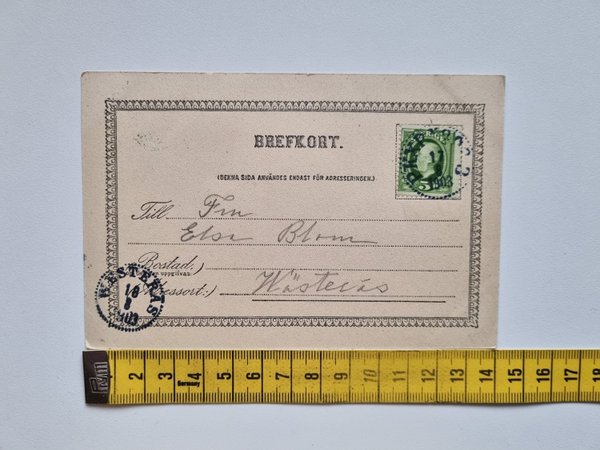 BREFKORT.
(DENNA SIDA ANVÄNDES ENDAST FÖR ADRESSERINGEN.)
Till Fru
Elsa Blom
Bostad:)
Wästerås
VESTERÅS
5
Germany
2 3 4 5 6 7 8 9 10 11 12 13 14 15 16 17 18